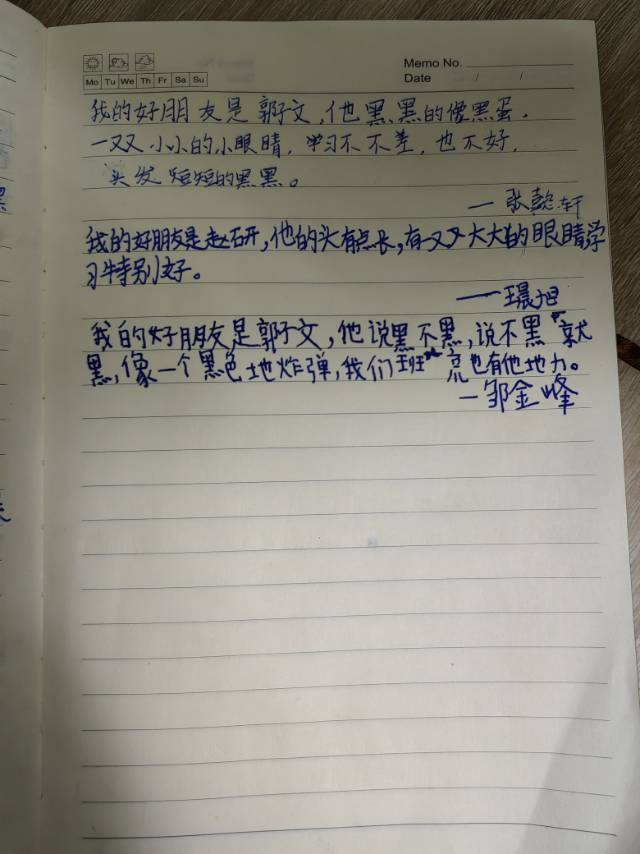 Memo No.
Mo Tu We Th Fr Sa Su
Date / /
我的好朋友是郭子文,他黑黑的像黑蛋.
一双小小的小眼睛.学习不不差,也不好.
头发短短的黑黑。
—张懿轩
我的好朋友是赵石开,他的头有点长,有一双大大的眼睛学
习特别好。
——晨旭
我的好朋友是郭子文,他说黑不黑,说不黑就
黑,像一个黑色地炸弹,我们班亮也有他地力。
—邹金峰